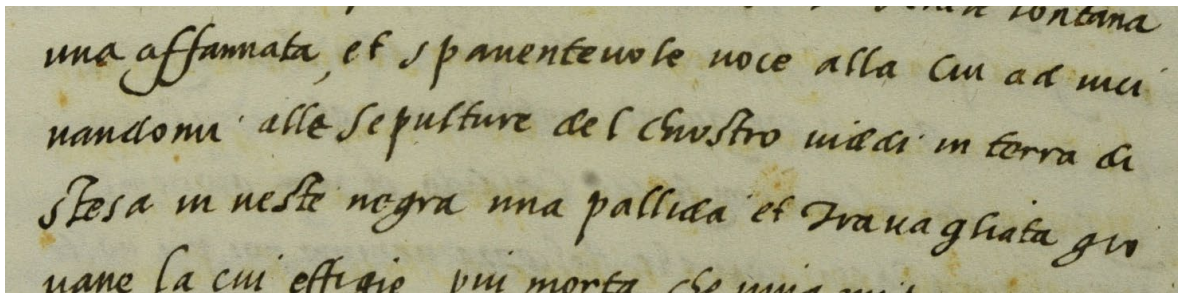 lontana
una affannata, et spauenteuole uoce alla cui ad iuci
nandomi alle sepulture del chiostro uiddi in terra di
stesa in ueste negra una pallida et trauagliata gio
uane la cui effigie piu morta che uiua